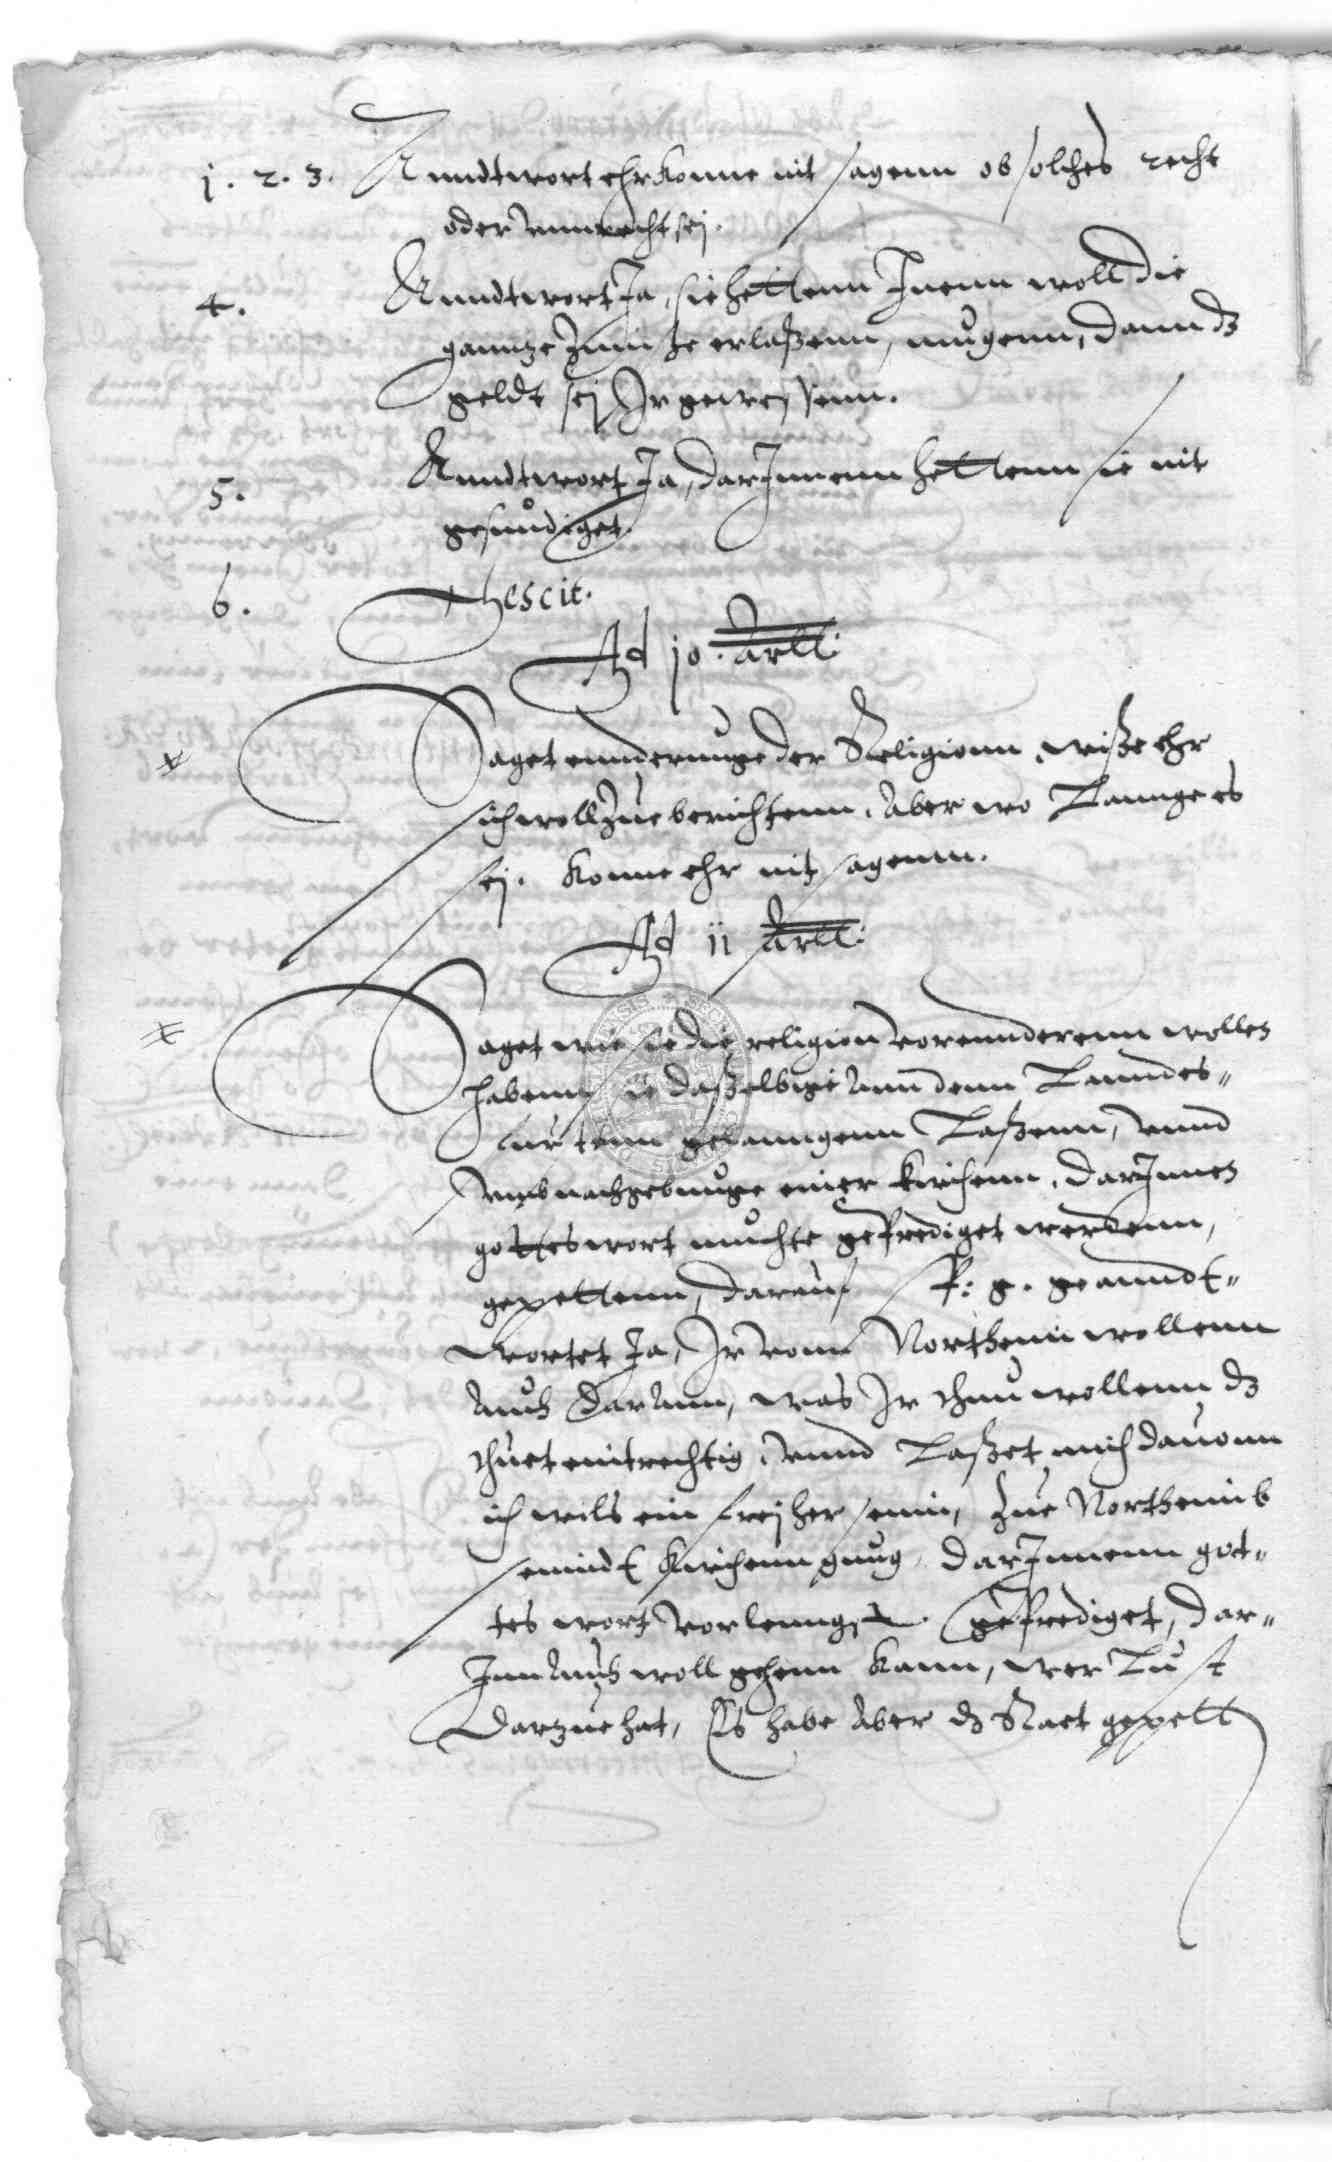 1. 2. 3. Anndtwort ehr konne nit sagenn ob solches recht
oder vnnrecht sej.
4. Anndtwort Ja, sie hettenn Inenn woll die
ganntze Zinse erlaßenn, mugenn, dann dz
geldt sej Ir gewessenn.
5. Anndtwort Ja, darInnenn hettenn sie nit
gesundiget.
6. Nescit.
Ad 10. Artll:
Saget enderunge der Religionn, wiße ehr
sich woll zue berichtenn, Aber wo Lannge es
sej. konne ehr nit sagenn.
Ad 11 Artll:
Saget wie sie die religion vorennderenn wollen
habenn sie daßelbige Ann denn Lanndes-
furstenn gelanngenn Laßenn, vnnd
vmb nachgebunge einer kirchenn, darInnen
gotteswort muchte geprediget werdenn,
gepettenn, darauf f: g. geanndt-
wortet Ja, Ir vonn Northeim wollenn
Auch darAnn, was Ir thun wollenn dz
thuet eintrechtig, vnnd Laßet mich dauonn
ich wils ein freij her seinn, Zue Northeimb
seindt kirchenn gnug, darInnenn got-
tes wort vorlenngst geprediget, dar-
Inn Auch woll gehenn kann, wer Lust
darzue hat, Es habe Aber dz Raet gepett